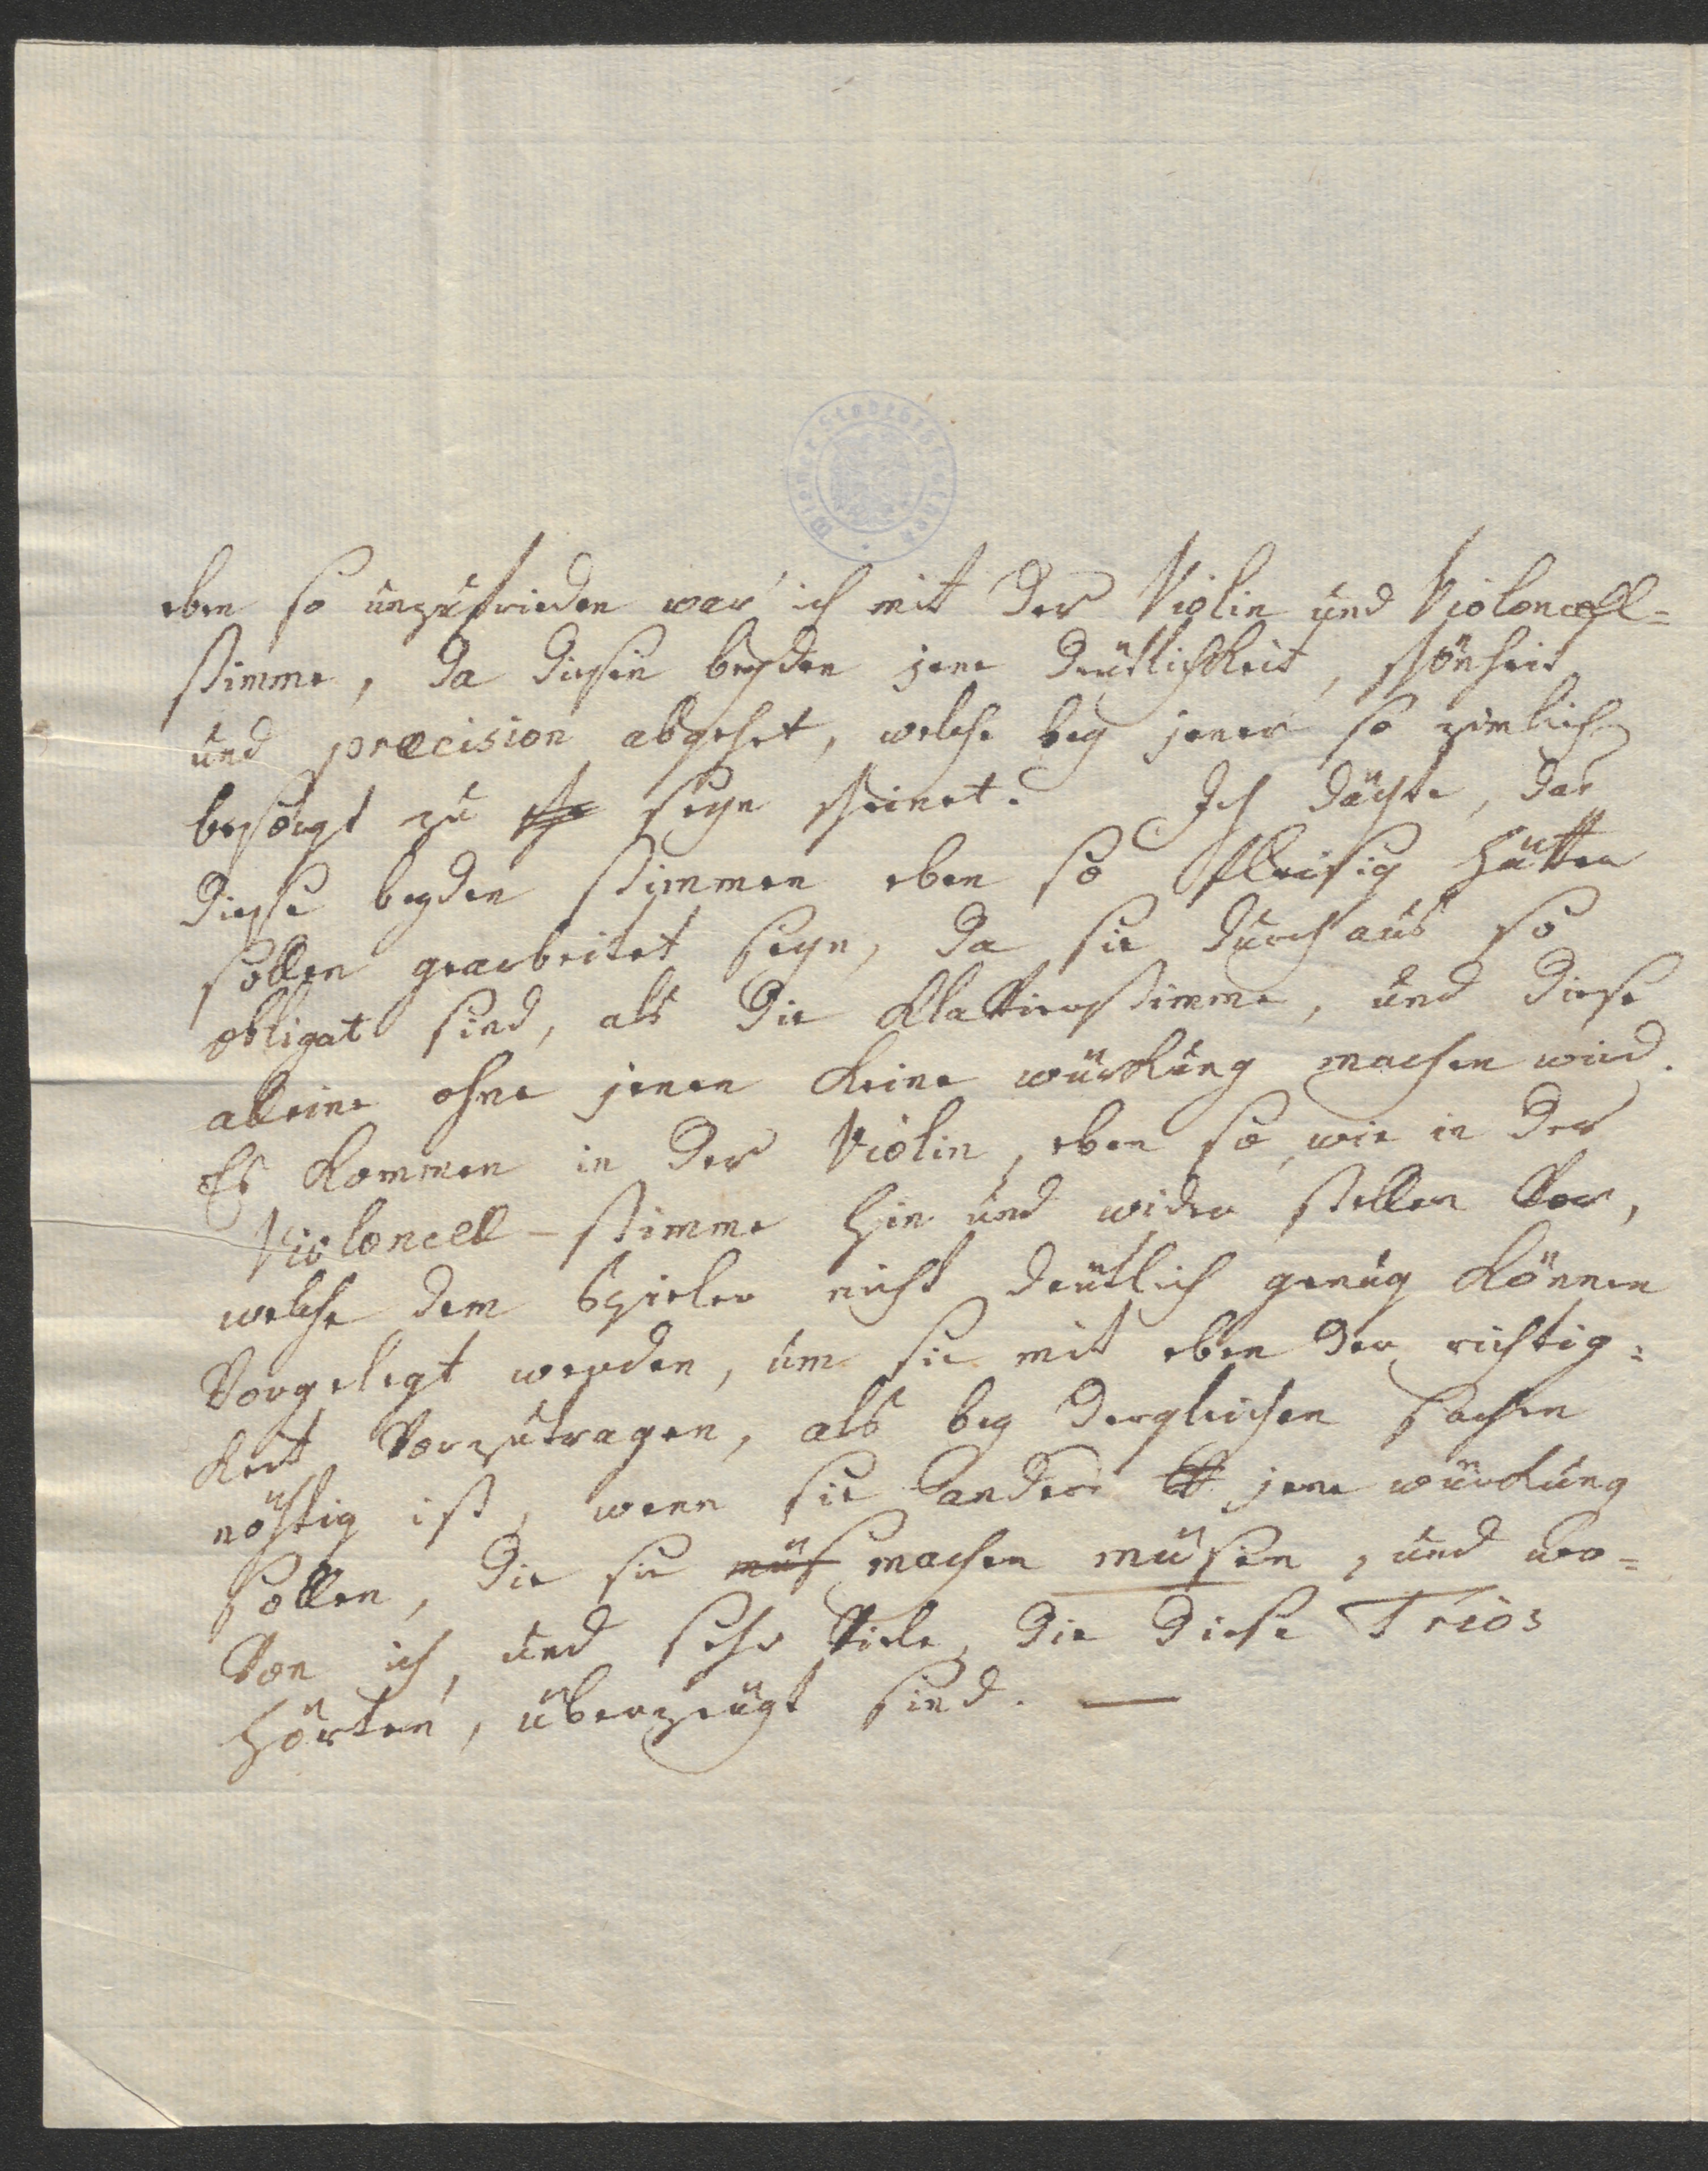 Wiener Stadtbibliothek
eben so unzufrieden war ich mit der Violin und Violoncell=
stimme, da diesen beyden jene deutlichkeit, schönheit
und præcision abgehet, welche bey jener so zimlich
besorgt zu seyn scheinet. Ich dächte, das
diese beyden stimmen eben so fleisig hätten
sollen gearbeitet seyn, da sie durchaus so
obligat sind, als die Klavierstimme, und diese
alleine ohne jenen keine würkung machen wird.
Es kommen in der Violin, eben so wie in der
Violoncell-stimme hin und wider stellen vor,
welche dem Spieler nicht deutlich genug können
vorgelegt werden, um sie mit eben der richtig=
keit vorzutragen, als bey dergleichen sachen
nöthig ist, wenn sie anders jene würkung
sollen, die sie müs machen müsen, und wo=
von ich, und sehr viele, die diese Trios
hörten, überzeügt sind. —